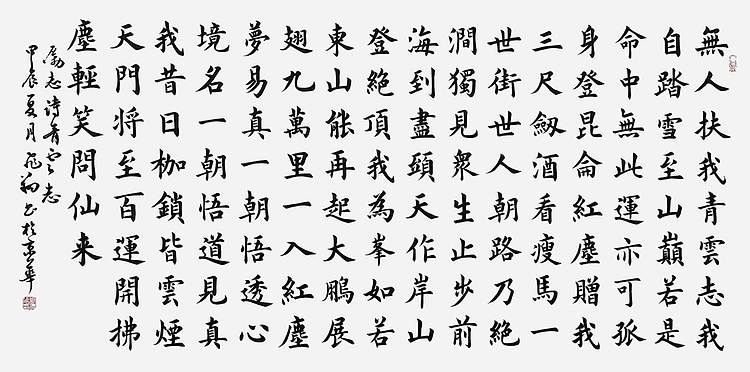 無人扶我青雲志我
自踏雪至山巔若是
命中無此運亦可孤
身登昆侖紅塵贈我
三尺劔酒看瘦馬一
世街世人朝路乃絕
澗獨見眾生止步前
海到盡頭天作岸山
登絕頂我為峯如若
東山能再起大鵬展
翅九萬里一入紅塵
夢易真一朝悟透心
境名一朝悟道見真
我昔日枷鎖皆雲煙
天門将至百運開拂
塵輕笑問仙来
志诗青云志
甲辰夏月书於京華